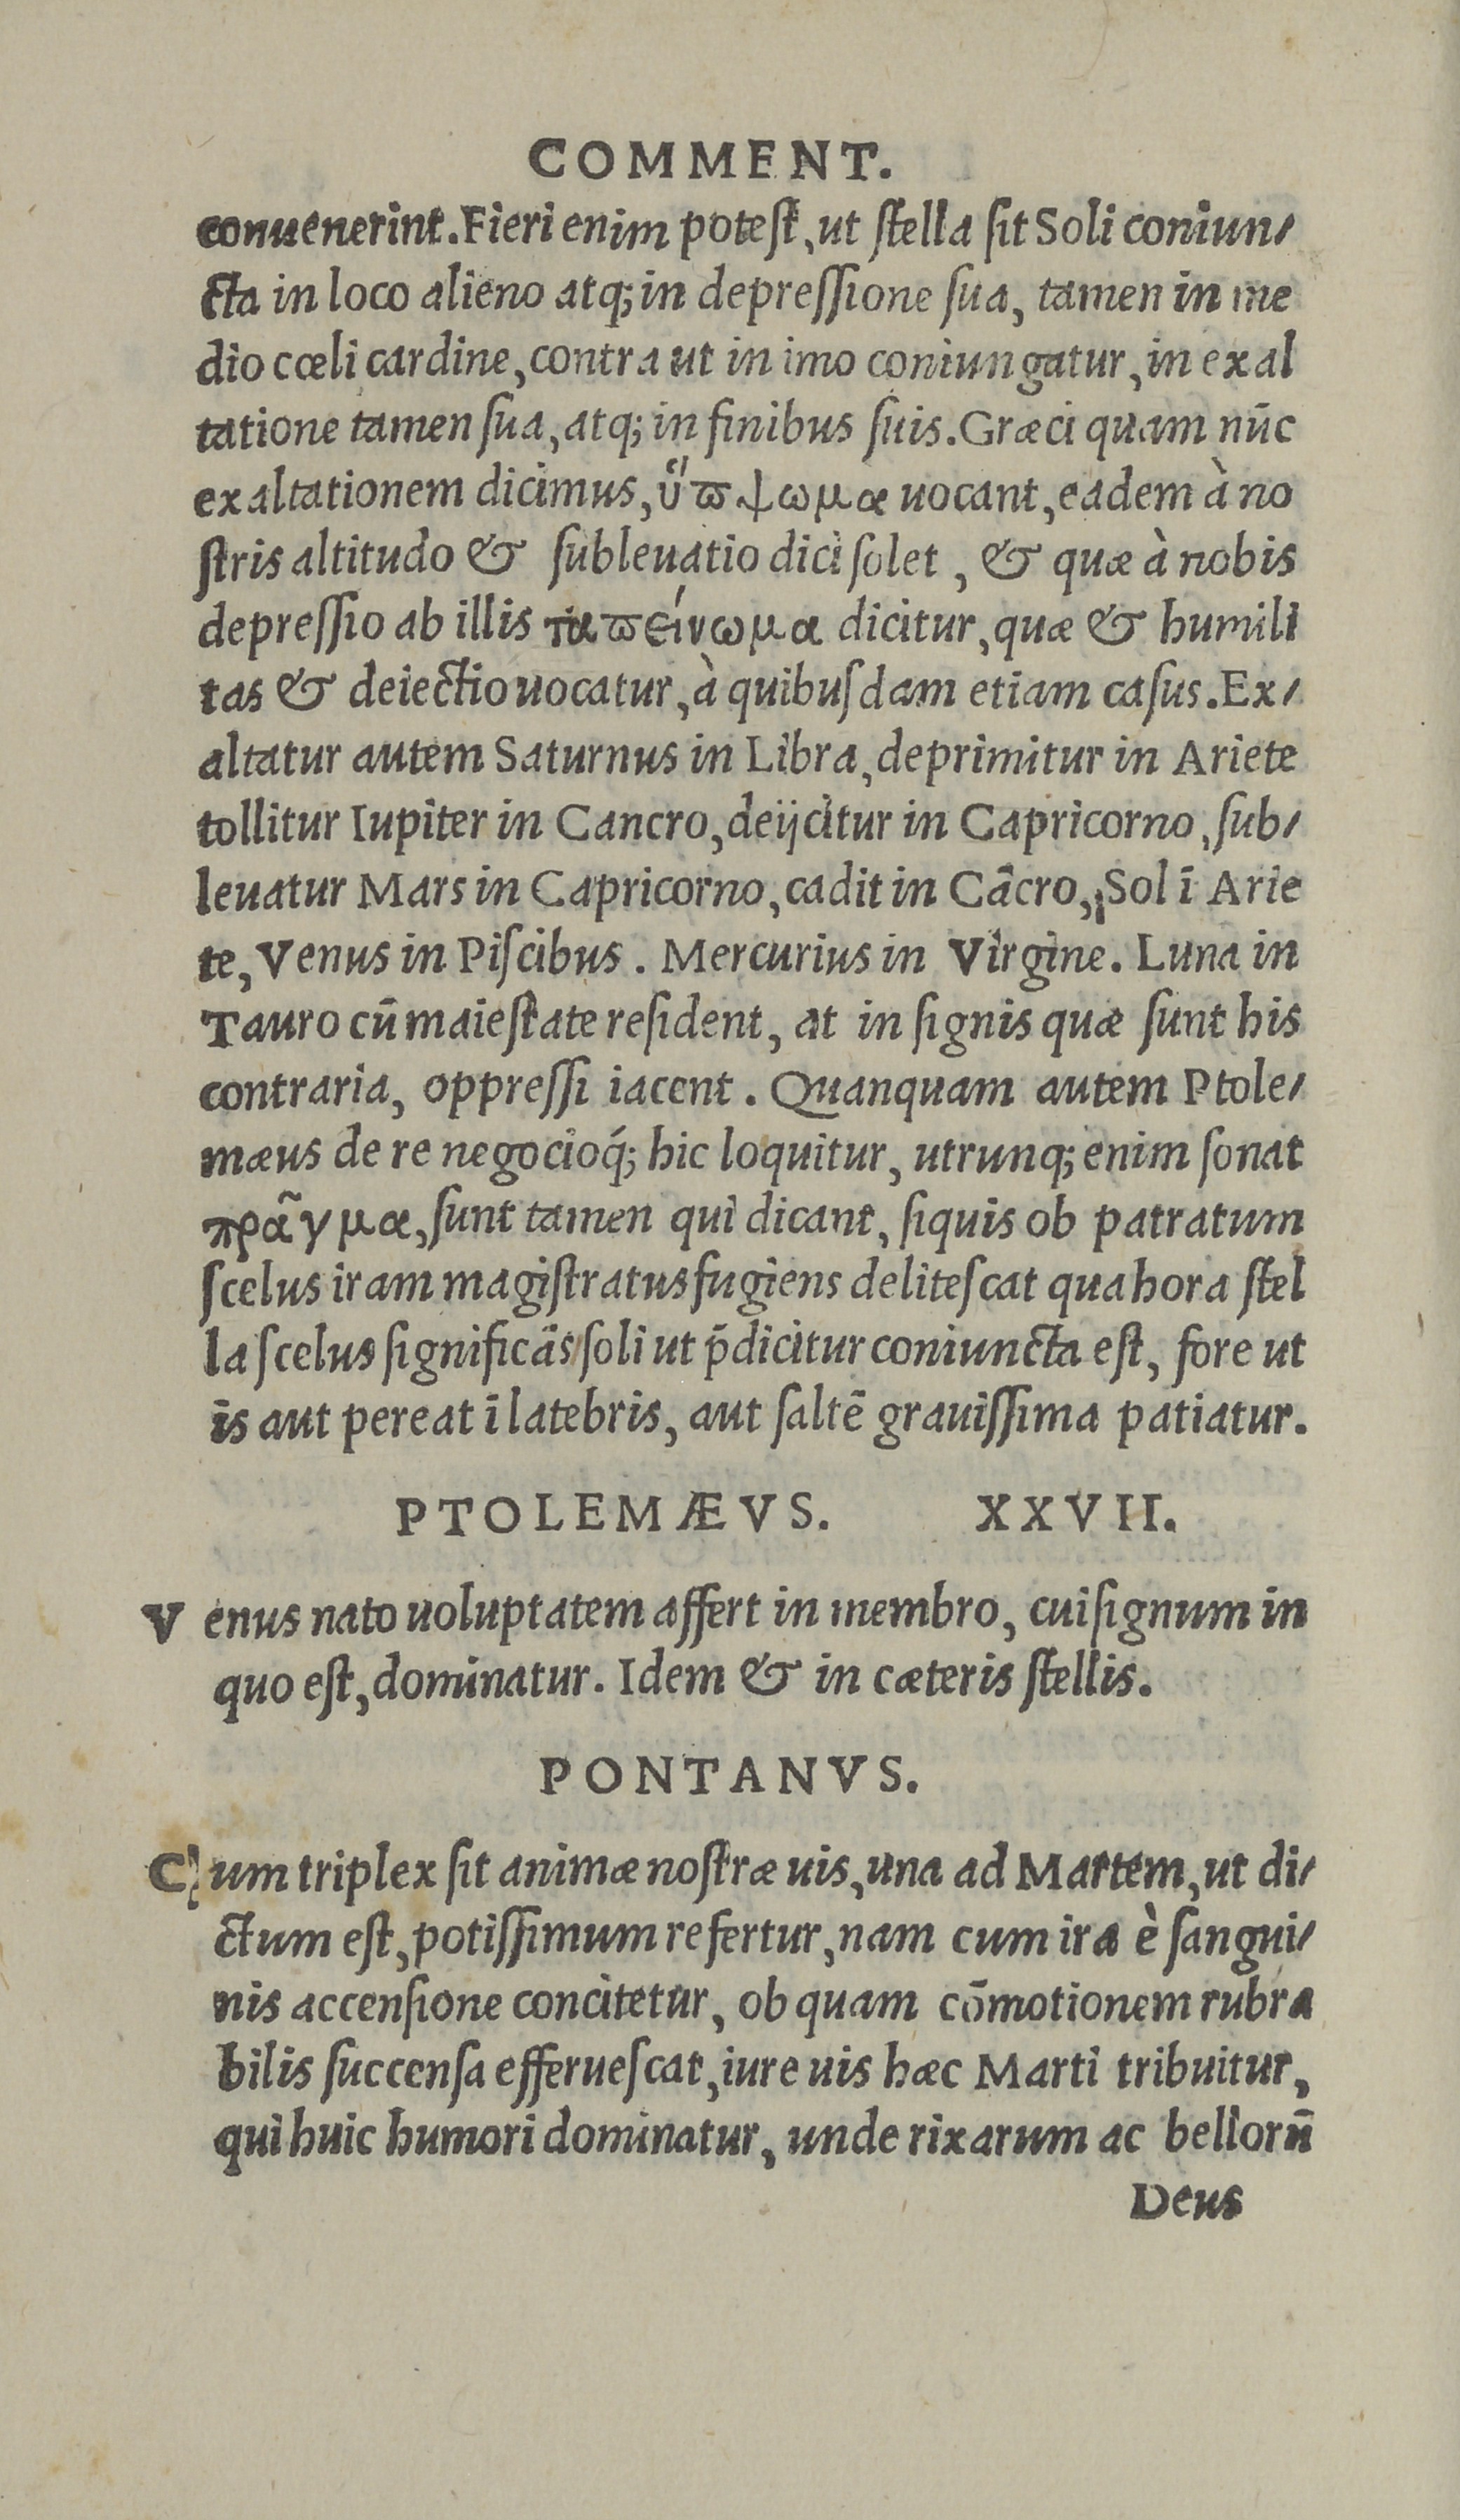 COMMENT.
conuenerint. Fieri enim potest, ut stella sit Soli coniun/
cta in loco alieno atq; in depressione sua, tamen in me
dio cœli cardine, contra ut in imo coniungatur, in exal
tatione tamen sua, atq; in finibus suis. Græci quam nūc
exaltationem dicimus, ὕϖψωμα uocant, eadem à no
stris altitudo & subleuatio dici solet, & quæ à nobis
depressio ab illis ταϖείνωμα dicitur, quæ & humili
tas & deiectio uocatur, à quibusdam etiam casus. Ex/
altatur autem Saturnus in Libra, deprimitur in Ariete
tollitur Iupiter in Cancro, deijcitur in Capricorno, sub/
leuatur Mars in Capricorno, cadit in Cācro, Sol ī Arie
te, Venus in Piscibus. Mercurius in Virgine. Luna in
Tauro cū maiestate resident, at in signis quæ sunt his
contraria, oppressi iacent. Quanquam autem Ptole/
mæus de re negocioq́; hic loquitur, utrunq; enim sonat
πρᾶγμα, sunt tamen qui dicant, siquis ob patratum
scelus iram magistratus fugiens delitescat qua hora stel
la scelus significās soli ut p̄dicitur coniuncta est, fore ut
is aut pereat ī latebris, aut saltē grauissima patiatur.
PTOLEMÆVS. XXVII.
Venus nato uoluptatem affert in membro, cui signum in
quo est, dominatur. Idem & in cæteris stellis.
PONTANVS.
Cum triplex sit animæ nostræ uis, una ad Martem, ut di/
ctum est, potissimum refertur, nam cum ira è sangui/
nis accensione concitetur, ob quam cōmotionem rubra
bilis succensa efferuescat, iure uis hæc Marti tribuitur,
qui huic humori dominatur, unde rixarum ac bellorū
Deus